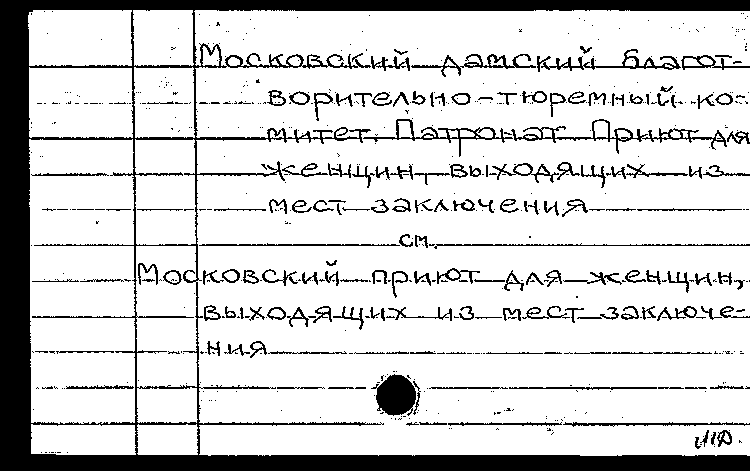 Московский дамский благот-
ворительно-тюремный ко-
митет. Патронат. Приют для
женщин, выходящих из
мест заключения
см.
Московский приют для женщин,
выходящих из мест заключе-
ния